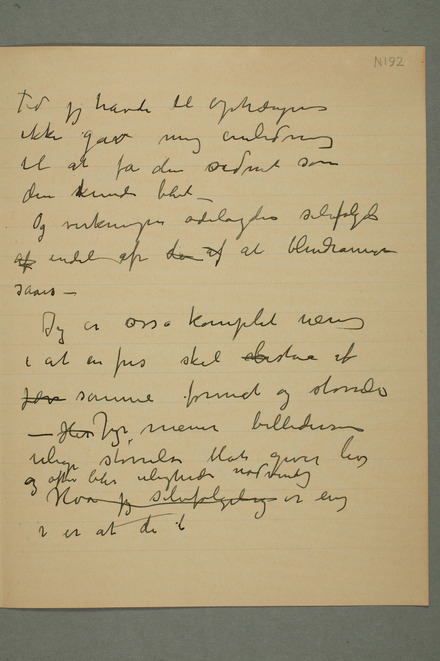 N192
Tid jeg havde til Ophængningen
ikke gav mig anledning
til at få den ordnet som
den kunde blit –
Og virkningen ødelagdes selvfølgelig
af endel af at blindrammen
saaes –
Jeg er også komplet uenig
i at en fris skal bestaa af
samme format og størrelse
– Jeg mener billedernes
ulige størrelse blot giver liv
og ofte blir ulighed nødvendig
Hvor jeg selvfølgelig er enig
i er at de i